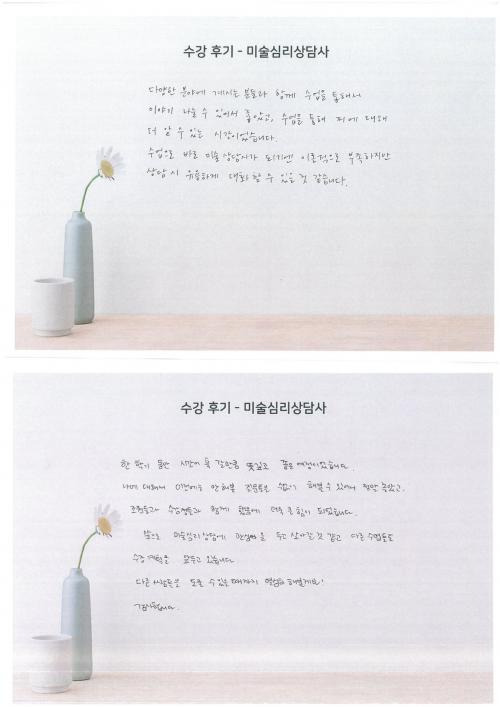 수강 후기 - 미술심리상담사
다양한 분야에 계시는 분들과 함께 수업을 통해서
이야기 나눌 수 있어서 좋았고, 수업을 통해 저에 대해
더 알 수 있는 시간이었습니다.
수업으로 바로 미술 상담사가 되기엔 이론적으로 부족하지만
상담 시 유용하게 대화 할 수 있을 것 같습니다.
수강 후기 - 미술심리상담사
한 학기 동안 시간이 훅 갈만큼 좋은 여정이었습니다.
나에 대해서 이전에는 안 해본 질문들을 해볼 수 있어서 정말 좋았고,
수강생들과 함께 더욱 큰 힘이 되었습니다.
앞으로 미술심리상담에 관심을 두고 살아갈 것 같고 다른 수업들도
수강 계획을 모두고 있습니다.
다른 사람들을 도울 수 있을 때까지 열심히 해볼게요!
감사합니다.